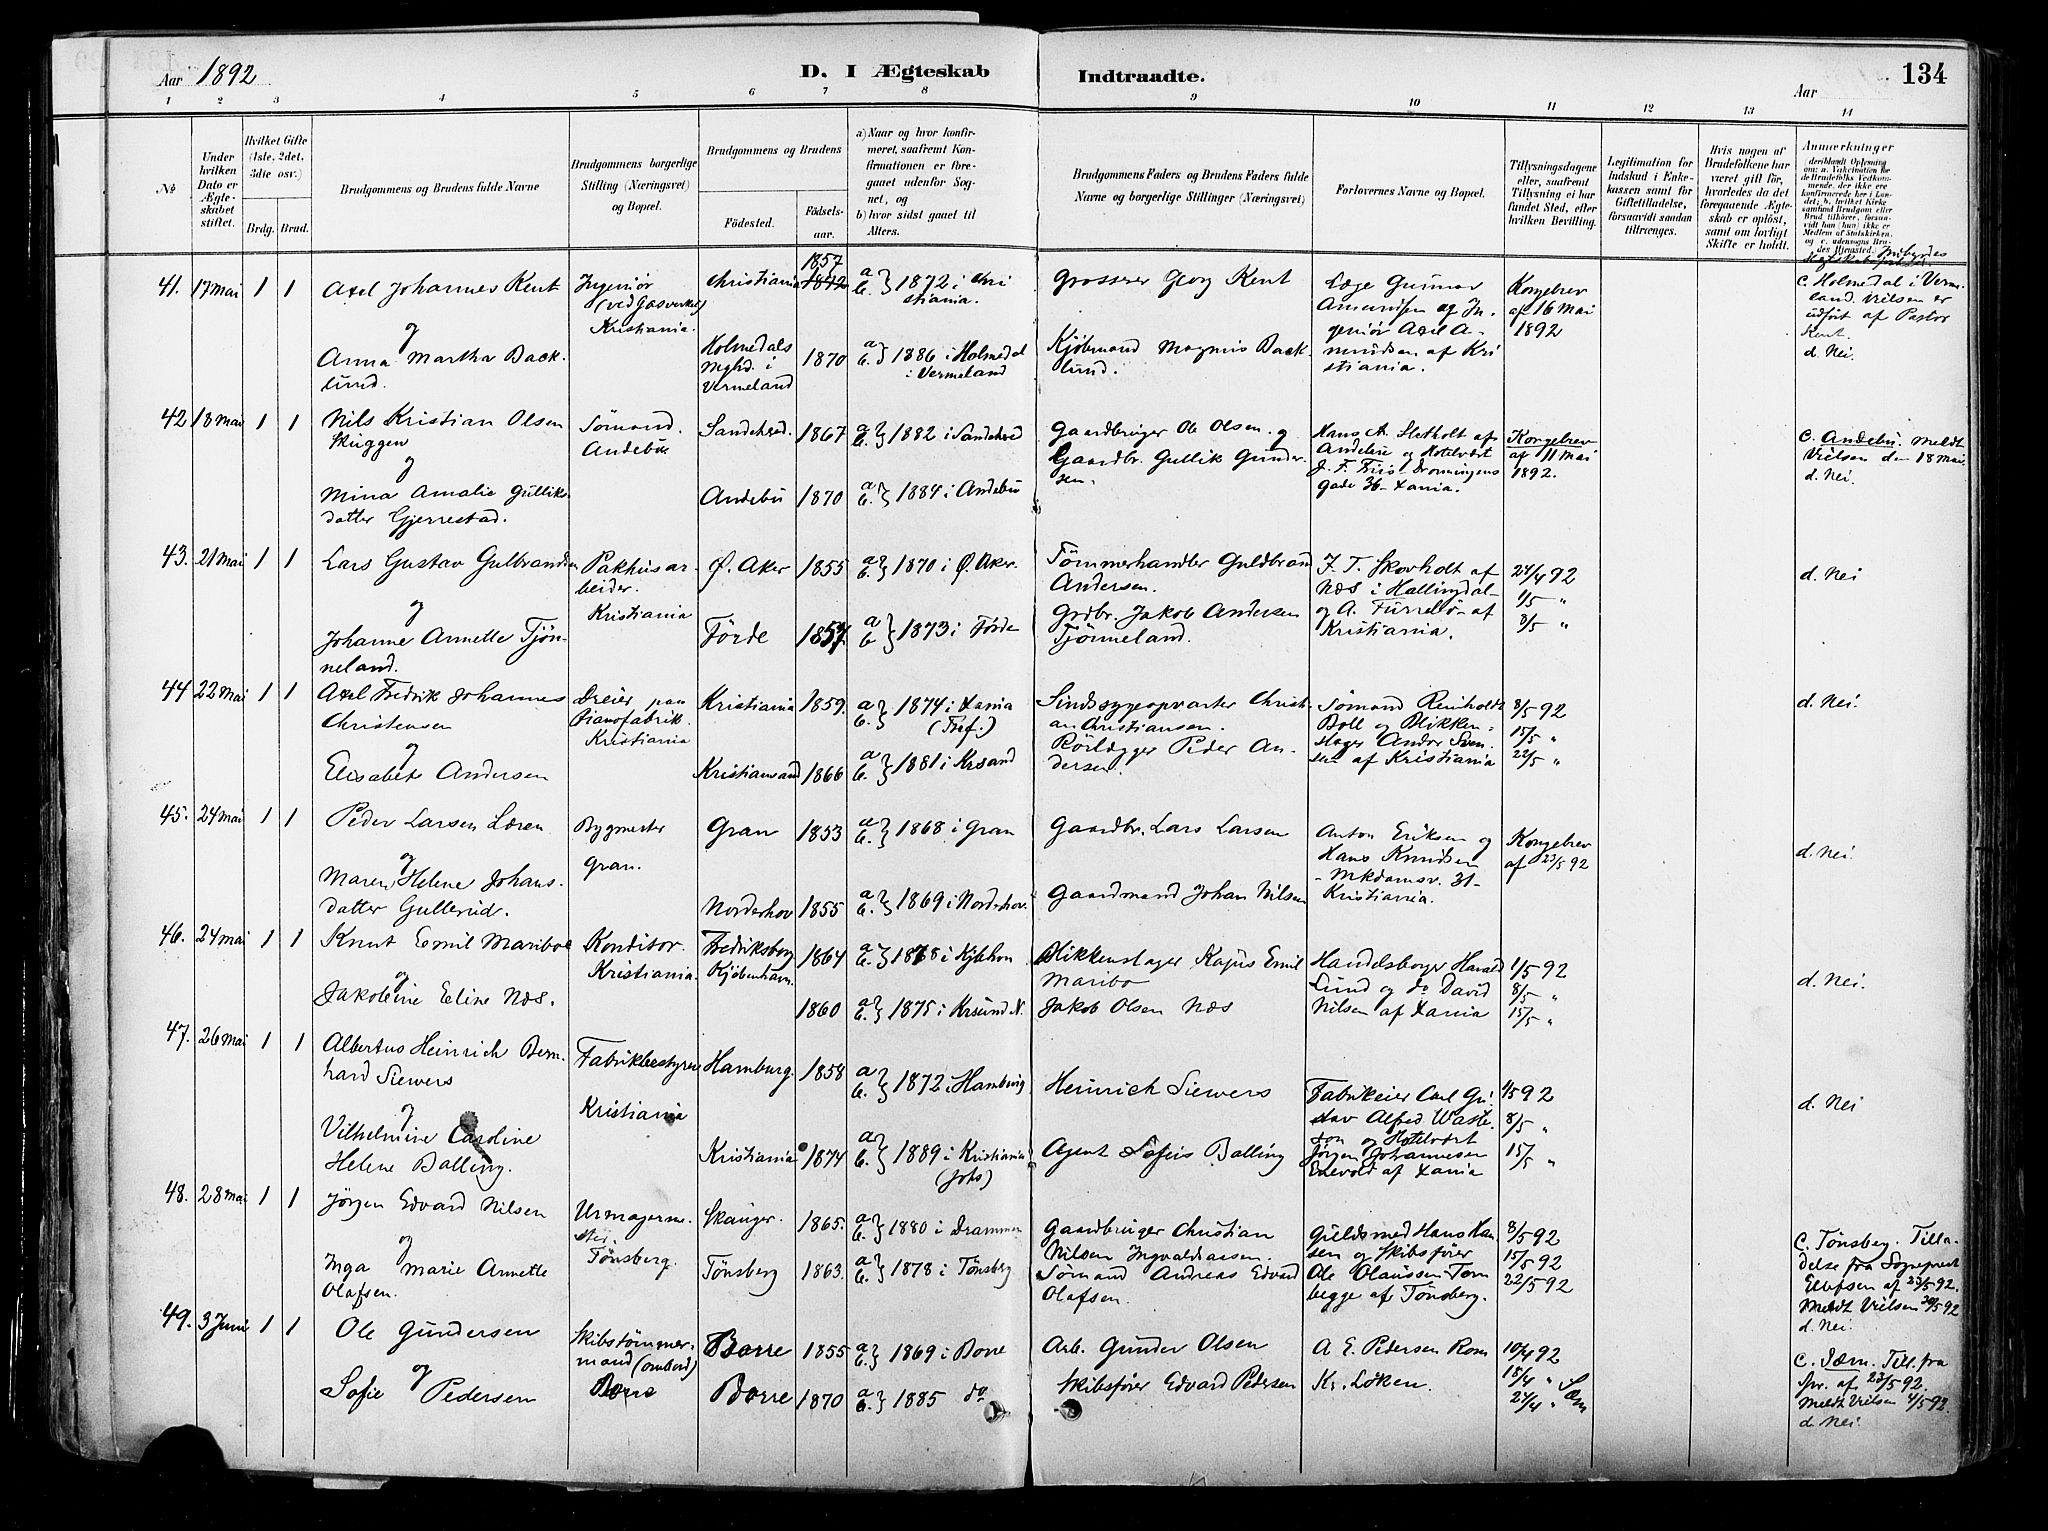 Aar 1892
D. I Ægteskab Indtraadte.
Aar
134
1 2 3 4 5 6 7 8 9 10 11 12 13 14
No
Under hvilken Dato er Ægteskabet stiftet.
Hvilket Gifte (1ste, 2det, 3die osv.)
Brdg. Brud.
Brudgommens og Brudens fulde Navne
Brudgommens borgerlige Stilling (Næringsvei) og Bopæl.
Brudgommens og Brudens
Födested.
Födselsaar.
a) Naar og hvor konfirmeret, saafremt Konfirmationen er foregaaet udenfor Sognet, og
b) hvor sidst gaaet til Alters.
Brudgommens Faders og Brudens Faders fulde Navne og borgerlige Stillinger (Næringsvei)
Forlovernes Navne og Bopæl.
Tillysningsdagene eller, saafremt Tillysning ei har fundet Sted, efter hvilken Bevilling.
Legitimation for Indskud i Enkekassen samt for Giftetilladelse, forsaavidt saadan tiltrænges.
Hvis nogen af Brudefolkene har været gift för, hvorledes da det foregaaende Ægteskab er oplöst, samt om lovligt Skifte er holdt.
Anmærkninger
41. 17 Mai 1 1
Axel Johannes Kent
og
Anna Martha Backlund.
Ingeniör (ved Gasverket) Kristiania.
Christiania 1857 1842
a b. } 1872 i Christiania.
Holmedals i Vermeland 1870
a b. } 1886 i Holmedal i Vermeland
Grosserer Georg Kent
Kjöbmand Magnus Backlund.
Læge Gunnar Amundsen og Ingeniör Axel Amundsen af Kristiania.
Kongebrev af 16 Mai 1892
C. Holmedal i Vermeland. Vielsen er udfört af Pastor Kent.
d. Nei.
42 18 Mai 1 1
Nils Kristian Olsen Skuggen
og
Mina Amalie Gulliksdatter Gjerrestad.
Sömand. Andebu
Sandehred. 1867
a b. } 1882 i Sandehred
Andebu 1870
a b. } 1884 i Andebu
Gaardbruger Ole Olsen. og
Gaardbr. Gullik Gundersen.
Hans A. Sletholt af Andebu og Hotelvært J. F. Friis Dronningens gade 36 Xania.
Kongebrev af 11 Mai 1892.
C. Andebu. Meldt Vielsen den 18 Mai.
d. Nei.
43. 21 Mai 1 1
Lars Gustav Gulbrandsen
og
Johanne Annette Tjönneland.
Pakhusarbeider. Kristiania
Ø. Aker 1855
a b. } 1870 i Ø. Aker.
Förde 1857.
a b } 1873 i Förde
Tömmerhandler Guldbrand Andersen.
Grdbr. Jakob Andersen Tjönneland.
J. T. Skovholt af Næs i Hallingdal og A. Furreló af Kristiania.
24/4 92
1/5 "
8/5 "
d. Nei
44 22 Mai 1 1
Axel Fredrik Johannes Christensen
og
Elisabet Andersen
Dreier paa Pianofabrik. Kristiania
Kristiania 1859.
a b. } 1874 i Xania (Tref.)
Kristiansand 1866
a b. } 1881 i Krsand
Sindssygeopvarter Christian Christiansen.
Rörlægger Peder Andersen.
Sömand Reinholdt Boll og Blikkenslager Andor Svensen af Kristiania
8/5 92
15/5 "
22/5 "
d. Nei.
45. 24 Mai 1 1
Peder Larsen Læren
og
Maren Helene Johansdatter Gullerud.
Bygmester Gran.
Gran 1853
a b. } 1868 i Gran
Norderhov 1855
a b. } 1869 i Norderhov.
Gaardbr. Lars Larsen
Gaardmand Johan Nilsen
Anton Eriksen og Hans Knudsen Mkdamsv. 31 Kristiania.
Kongebrev af 23/5 92
d. Nei.
46. 24 Mai 1 1
Knut Emil Maribo
og
Jakobine Eline Næs.
Konditor. Kristiania.
Fredriksberg Kjöbenhavn. 1864
a b. } 1878 i Kjbhvn
1860
a b. } 1875 i Krsund N.
Blikkenslager Kajus Emil Maribo
Jakob Olsen Næs
Handelsborger Harald Lund og do David Nilsen af Xania
1/5 92
8/5 "
15/5 "
d. Nei.
47. 26 Mai 1 1
Albertus Heinrich Bernhard Siewers
og
Vilhelmine Caroline Helene Balling.
Fabrikbestyrer Kristiania
Hamburg. 1858
a b. } 1872 i Hamburg
Kristiania 1874
a b. } 1889 i Kristiania (Johs)
Heinrich Siewers
Agent Sofus Balling
Fabrikeier Carl Gustav Alfred Wasteson og Hotelvært Jörgen Johannesen Enevold af Xania
1/5 92
8/5 "
15/5 "
d. Nei
48. 28 Mai 1 1
Jörgen Edvard Nilsen
og
Inga Marie Annette Olafsen.
Urmagermester. Tönsberg.
Skauger. 1865.
a b. } 1880 i Drammen
Tönsberg 1863.
a b. } 1878 i Tönsberg
Gaardbruger Christian Nilsen Ingvaldsaasen.
Sömand Andreas Edvard Olafsen.
Guldsmed Hans Hansen og Skibsförer Ole Olaussen Tom begge af Tönsberg.
8/5 92
15/5 92
22/5 92
C. Tönsberg. Tilladelse fra Sognepræst Ellefsen af 23/5 92.
Meldt Vielsen 30/5 92
d. Nei.
49. 3 Juni 1 1
Ole Gundersen
og
Sofie Pedersen
Skibstömmermand (ombord) Borre
Borre 1855
a b. } 1869 i Borre
Borre 1870
a b. } 1885 do
Arb. Gunder Olsen
Skibsförer Edvard Pedersen
A E. Pedersen Rom
Kr. Löken.
10/4 92
15/4 "
24/4 " Sem
C. Sem. Till. fra Spr. af 23/5 92.
Meldt Vielsen 4/5 92.
d. Nei.